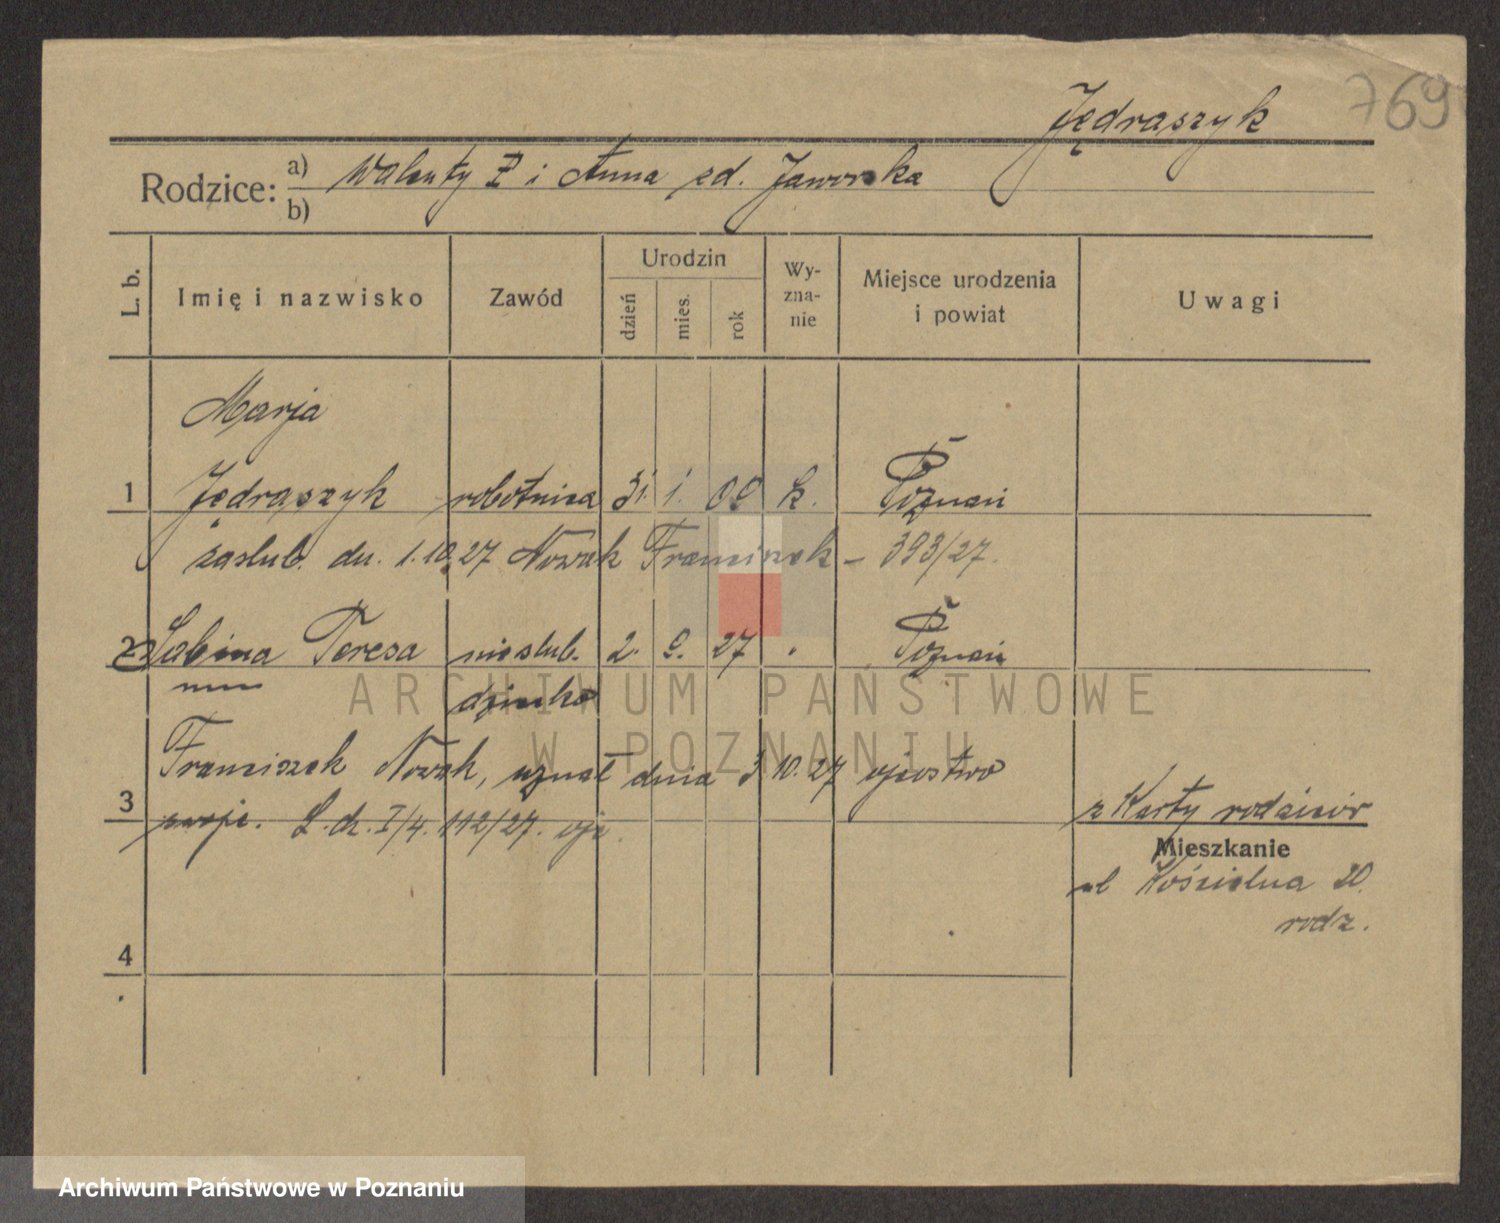 769
Jędraszyk
Rodzice: a) Walenty i Anna zd. Jaworska
b)
L. b. Imię i nazwisko Zawód Urodzin dzień mies. rok Wy-zna-nie Miejsce urodzenia i powiat Uwagi
Marja
1 Jędraszyk robotnica 31. 1. 09 k. Poznań
zaślub. dn. 1.10.27 Nowak Franciszek – 393/27.
2 Sabina Teresa nieślub. 2. 9. 27 Poznań
dziecko
ARCHIWUM PAŃSTWOWE
W POZNANIU
Franciszek Nowak, uznał dnia 3 10. 27 ojcostwo
3 swoje. L. dz. I/4. 112/27.
z Karty rodziców
Mieszkanie
ul Kościelna 20.
rodz.
4
Archiwum Państwowe w Poznaniu